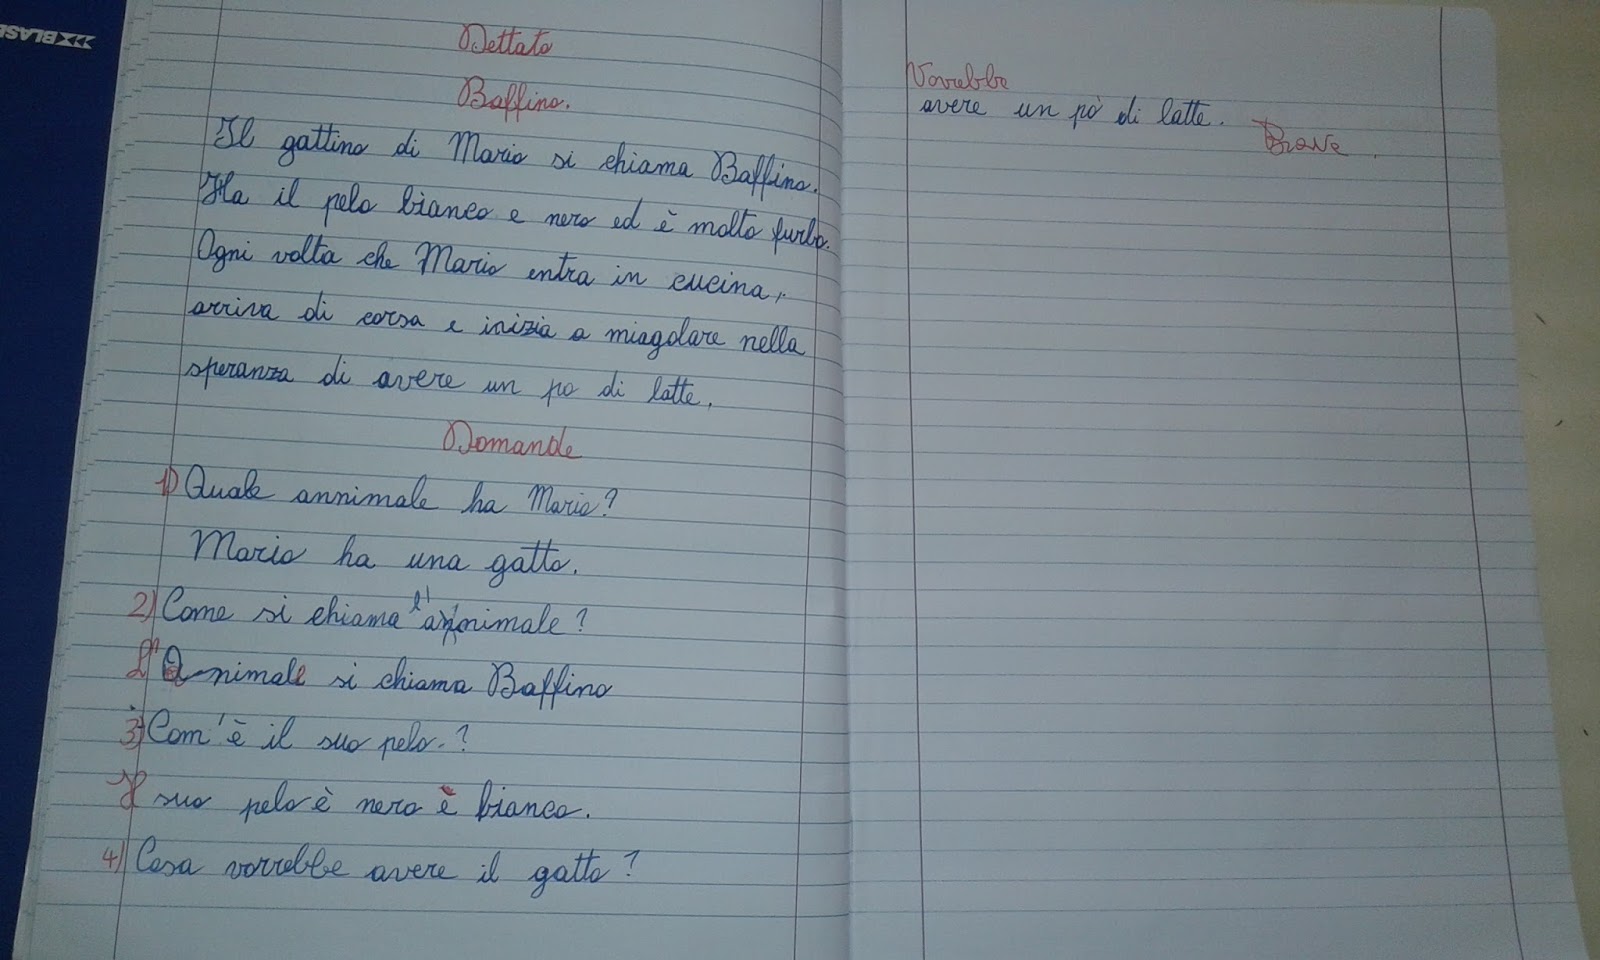 BLASE
Dettato
Baffino.
Il gattino di Mario si chiama Baffino.
Ha il pelo bianco e nero ed è molto furbo.
Ogni volta che Mario entra in cucina,
arriva di corsa e inizia a miagolare nella
speranza di avere un po di latte.
Domande
1) Quale annimale ha Mario?
Mario ha una gatto.
2) Come si chiama l'annimale?
L'animale si chiama Baffino
3) Com'è il suo pelo.?
Il suo pelo è nero e bianco.
4) Cosa vorrebbe avere il gatto?
Vorrebbe
avere un pò di latte.
Brave.